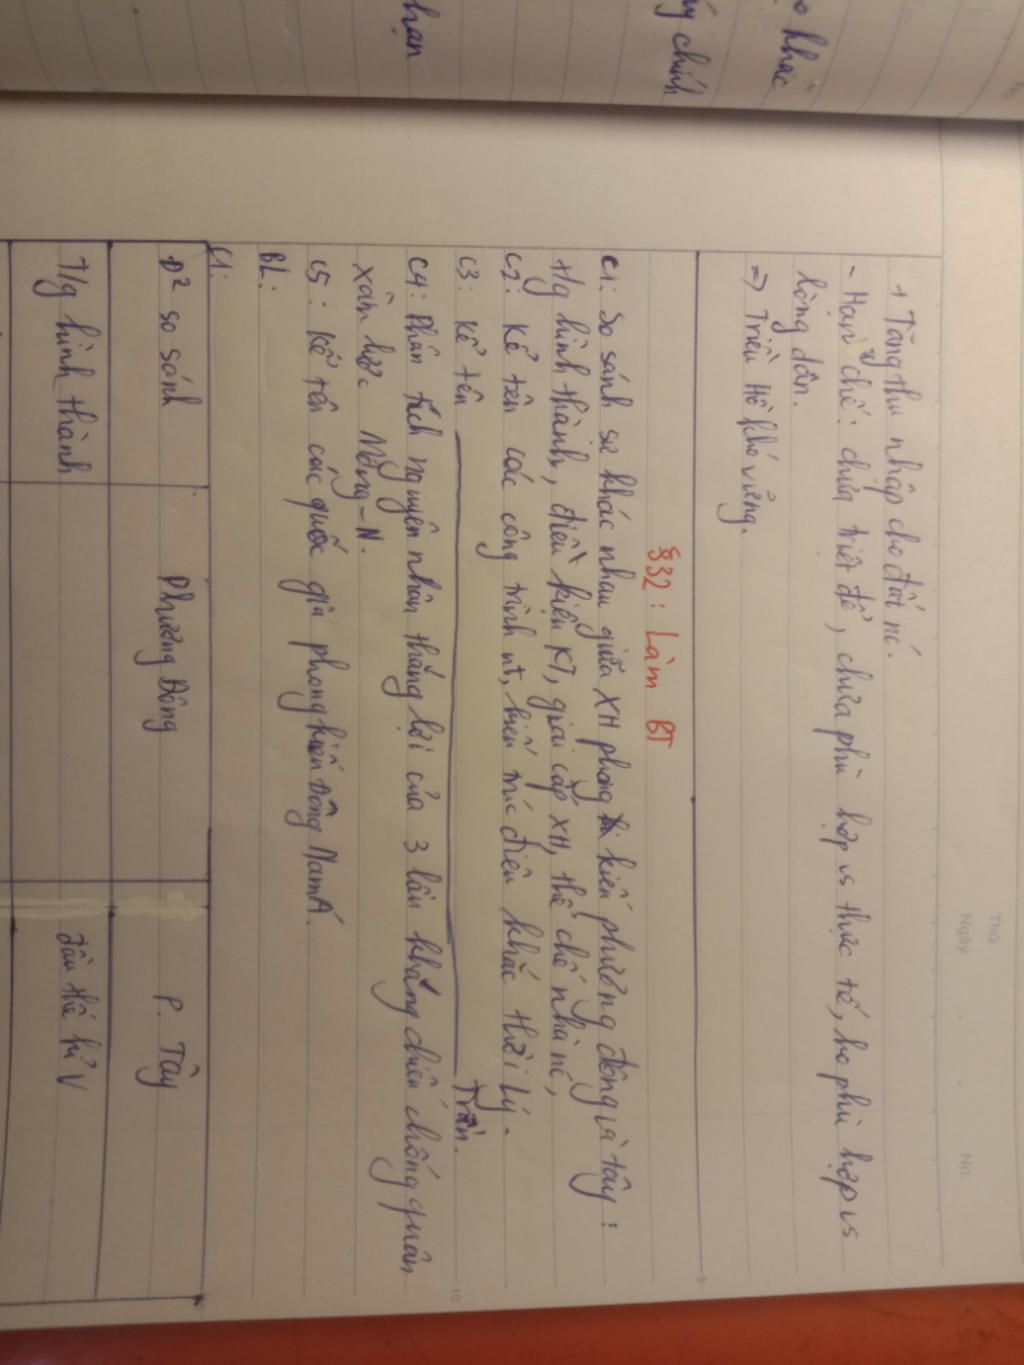 o khác
ý chính
hạn
Thứ
Ngày . . No.
+ Tăng thu nhập cho đất nc.
- Hạn chế: chưa triệt để, chưa phù hợp vs thực tế, ko phù hợp vs
lòng dân.
=> Triều Hồ khó vững.
§32: Làm BT
C1: So sánh sự khác nhau giữa XH phong kiến phương đông và tây:
t/g hình thành, điều kiện KT, giai cấp XH, thể chế nhà nc,
C2: Kể tên các công trình nt, kiến trúc điêu khắc thời Lý.
C3: Kể tên ________ Trần.
C4: Phân tích nguyên nhân thắng lợi của 3 lần kháng chiến chống quân
xâm lược Mông-N.
C5: Kể tên các quốc gia phong kiến Đông Nam Á.
BL:
C1:
Đ² so sánh Phương Đông P. Tây
T/g hình thành đầu thế kỉ V